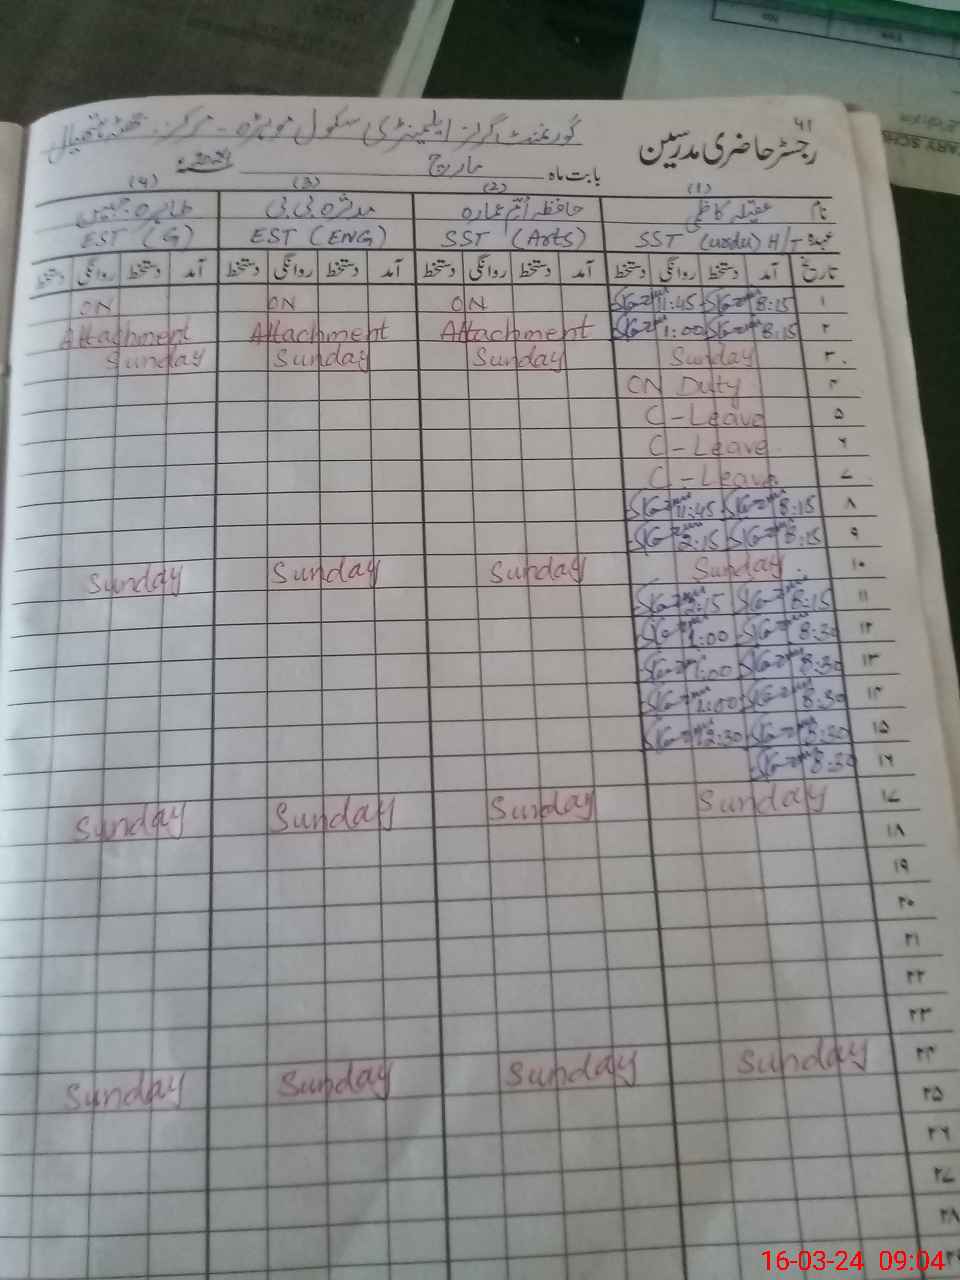 ۴۱
گورنمنٹ گرلز ایلیمنٹری سکول موہڑہ - مرکز
رجسٹر حاضری مدرسین
بابت ماہ مارچ 2024
(1) (2) (3) (4)
نام عقیلہ کاظمی حافظہ ام عمارہ مدثرہ بی بی طاہرہ
عہدہ SST (urdu) H/T SST (Arts) EST (ENG) EST (G)
تاریخ آمد دستخط روانگی دستخط آمد دستخط روانگی دستخط آمد دستخط روانگی دستخط آمد دستخط روانگی دستخط
۱ 8:15 11:45 ON ON ON
۲ 8:15 1:00 Attachment Attachment Attachment
۳ Sunday Sunday Sunday Sunday
۴ ON Duty
۵ C-Leave
۶ C-Leave
۷ C-Leave
۸ 8:15 11:45
۹ 8:15 2:15
۱۰ Sunday Sunday Sunday Sunday
۱۱ 8:15 2:15
۱۲ 8:30 1:00
۱۳ 8:30 1:00
۱۴ 8:30 1:00
۱۵ 8:30 12:30
۱۶ 8:30
۱۷ Sunday Sunday Sunday Sunday
۱۸
۱۹
۲۰
۲۱
۲۲
۲۳
۲۴ Sunday Sunday Sunday Sunday
۲۵
۲۶
۲۷
۲۸
16-03-24 09:04